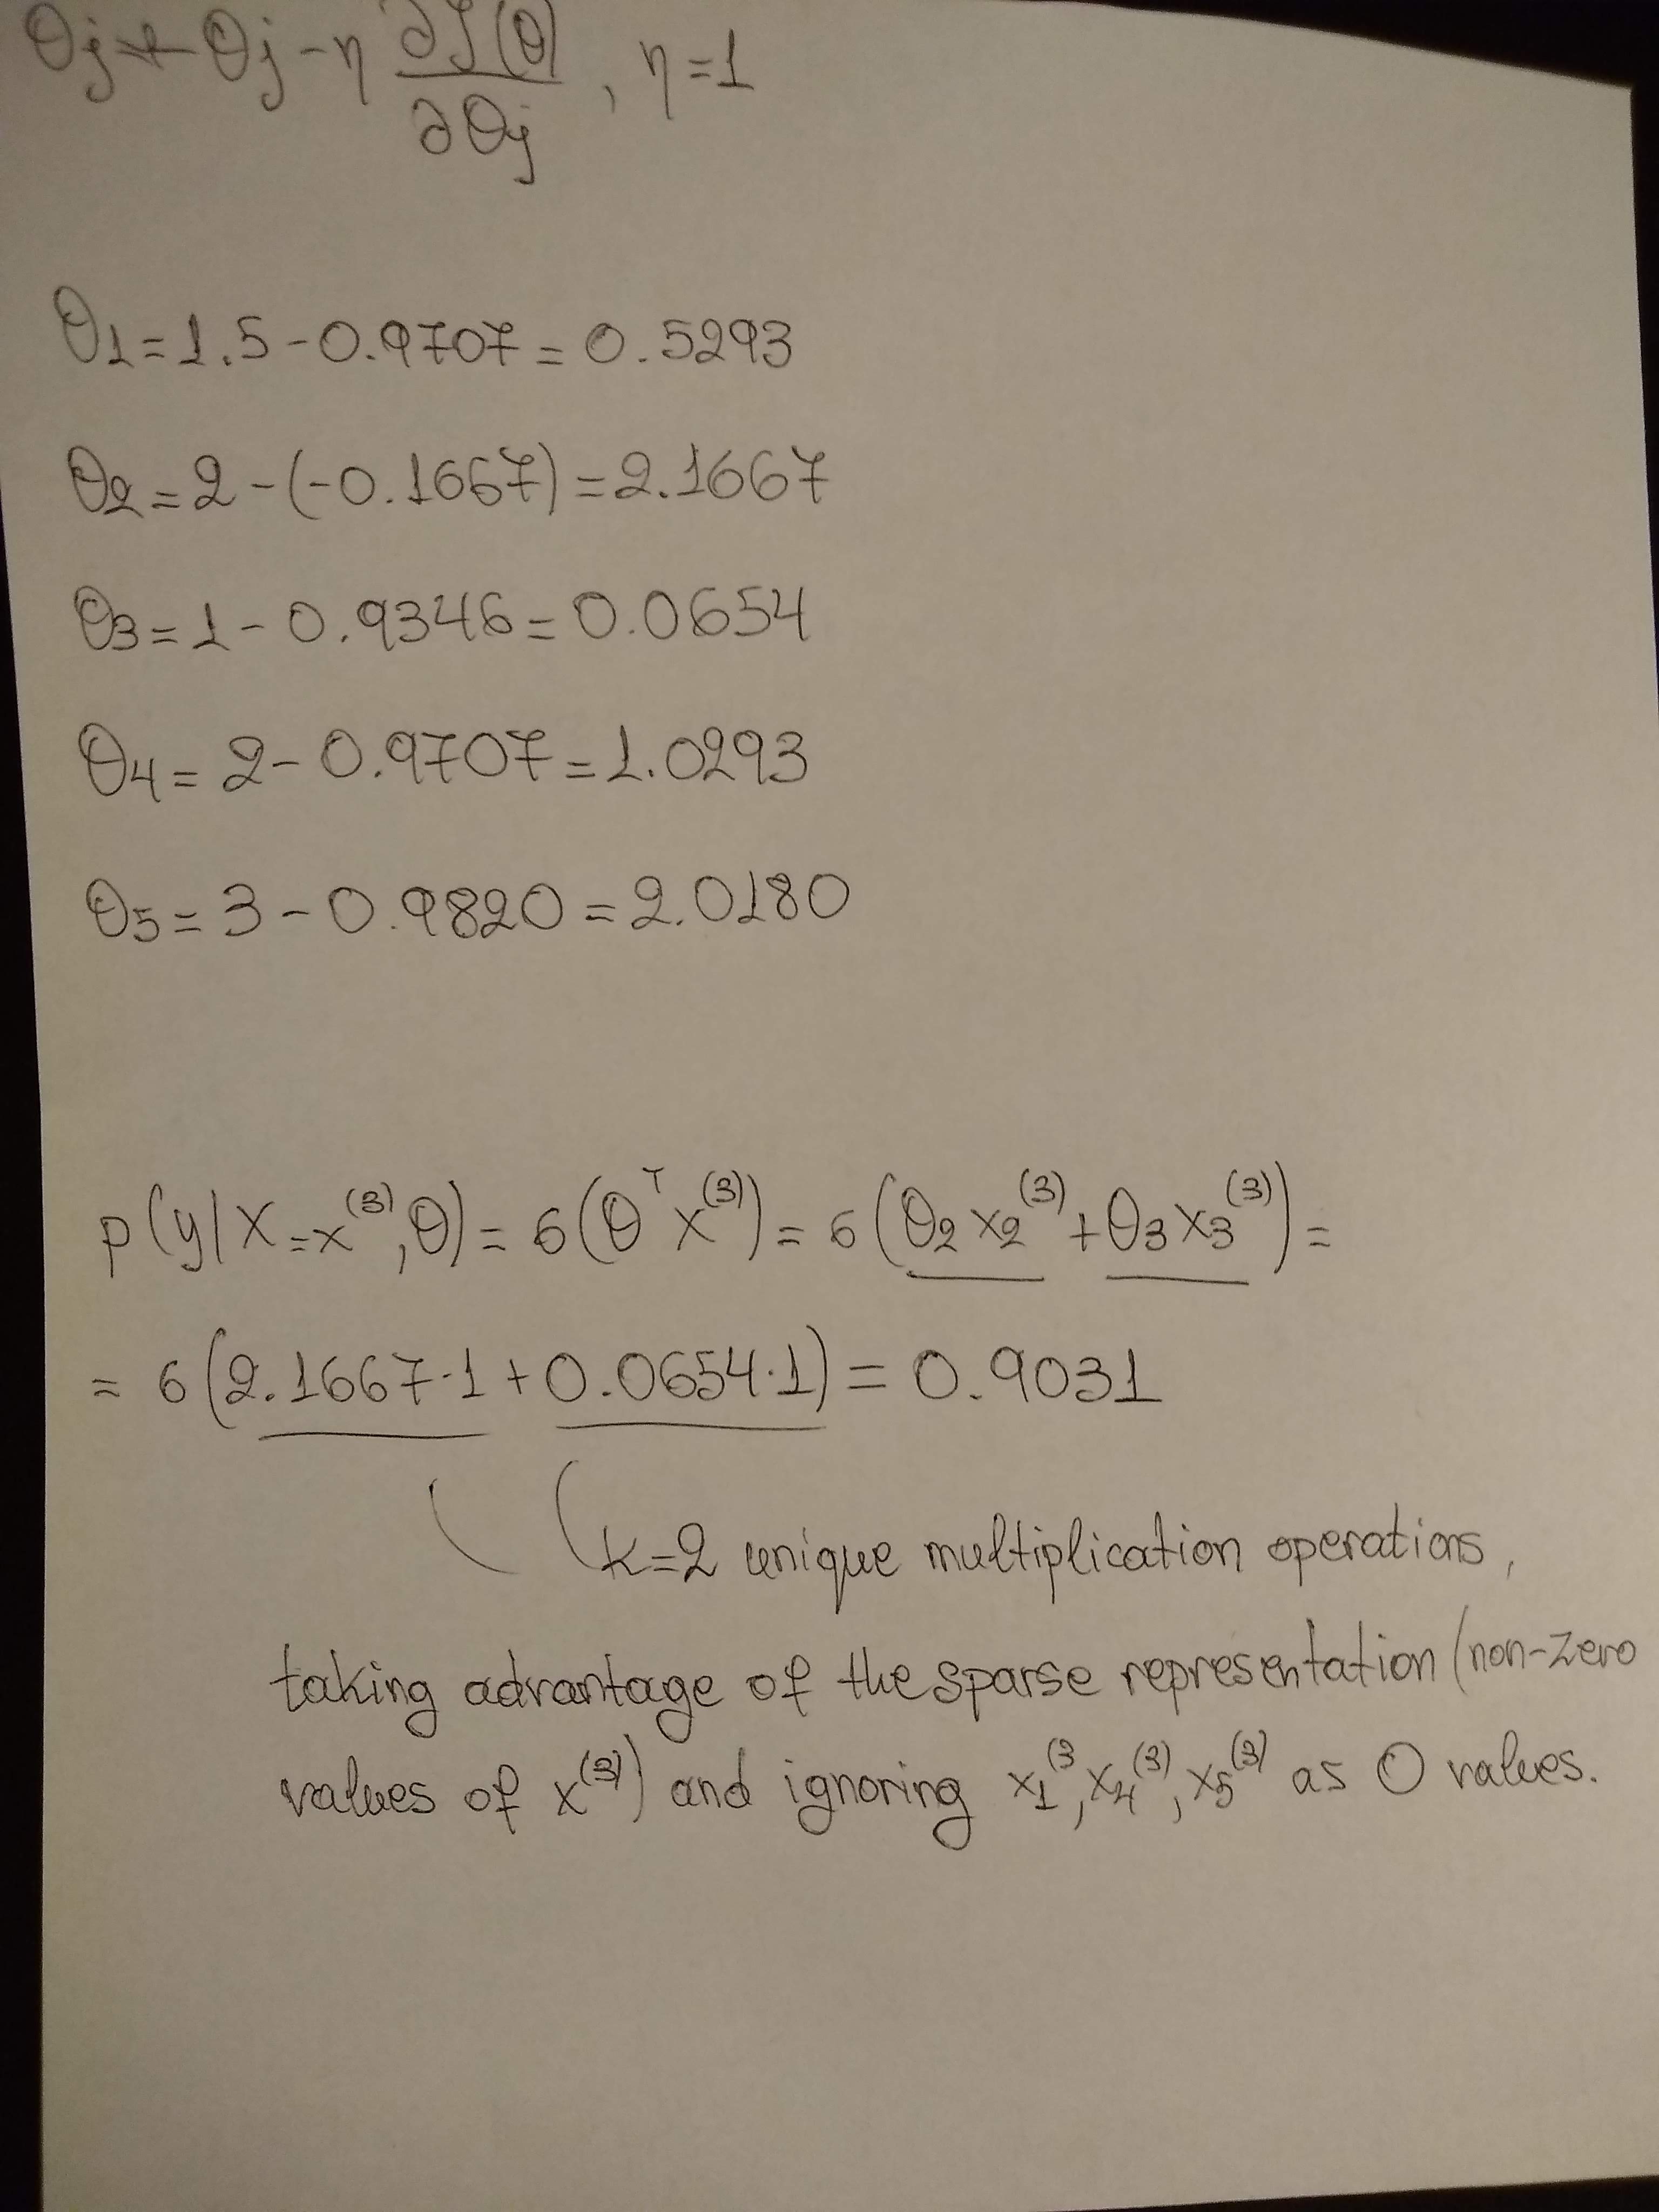 θj ← θj - η ∂J(θ)/∂θj , η=1
θ1 = 1.5 - 0.9707 = 0.5293
θ2 = 2 - (-0.1667) = 2.1667
θ3 = 1 - 0.9346 = 0.0654
θ4 = 2 - 0.9707 = 1.0293
θ5 = 3 - 0.9820 = 2.0180
p(y|X=x^(3),θ) = σ(θ^T x^(3)) = σ(θ2 x2^(3) + θ3 x3^(3)) =
= σ(2.1667·1 + 0.0654·1) = 0.9031
k=2 unique multiplication operations,
taking advantage of the sparse representation (non-zero
values of x^(3)) and ignoring x1^(3, x4^(3), x5^(3) as 0 values.